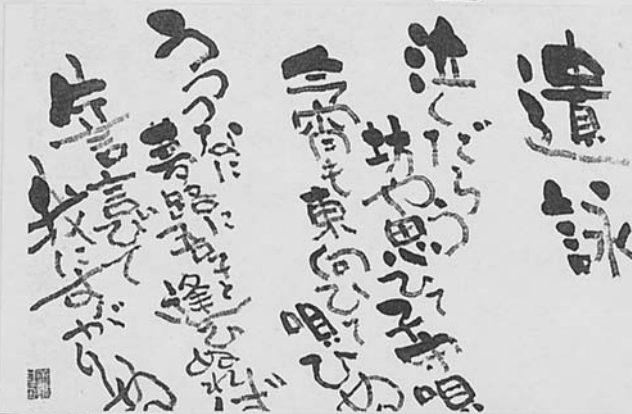 遺詠
泣くだらう
坊や思ひて子守唄
今宵も東向ひて唄ひぬ
うつつなに
路に 逢ひぬれば
片言言ひて
我にすがりぬ